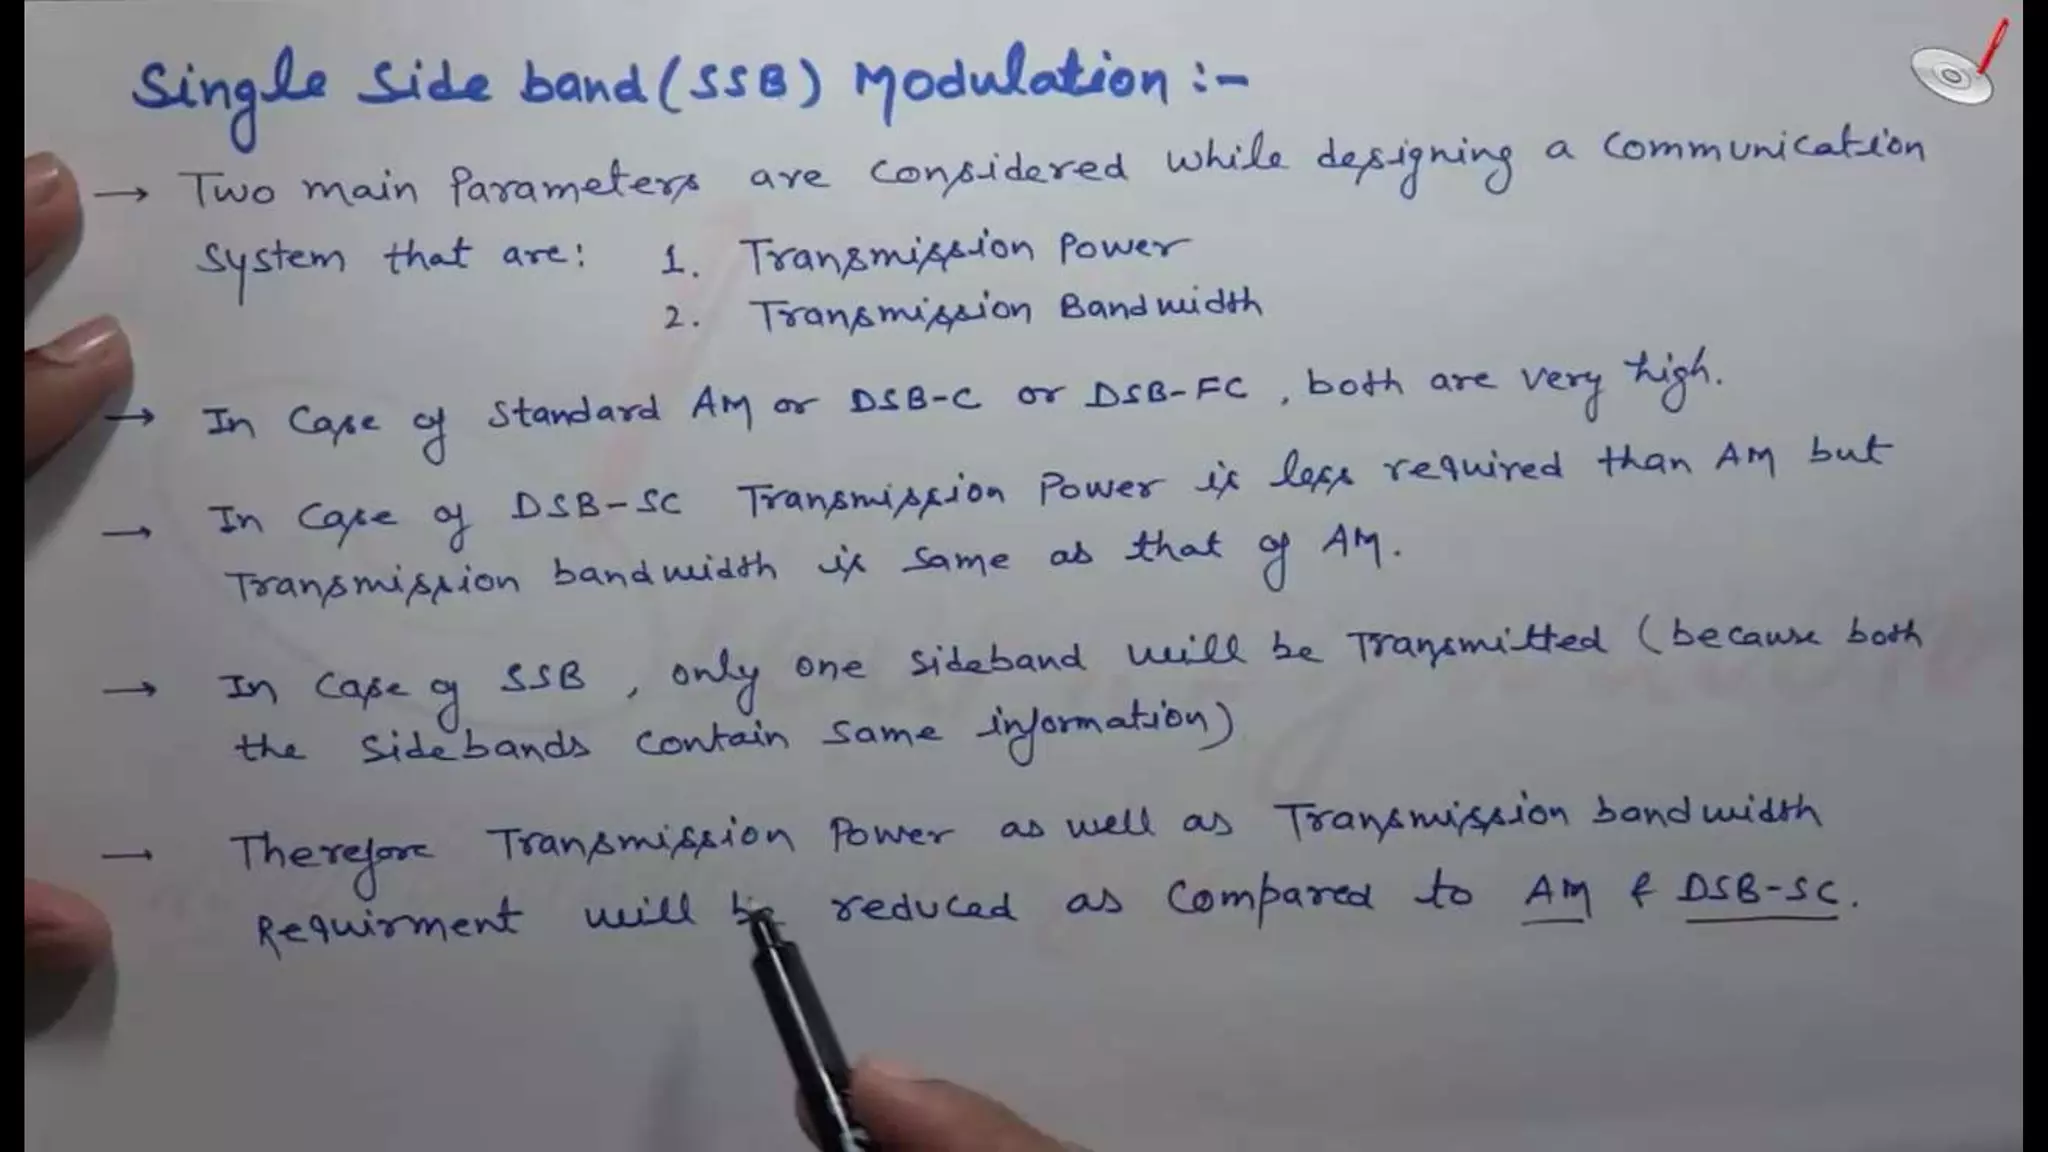 Single Side band (SSB) Modulation :-
→ Two main Parameters are considered while designing a communication
system that are: 1. Transmission Power
2. Transmission Bandwidth
→ In Case of Standard AM or DSB-C or DSB-FC, both are very high.
→ In Case of DSB-SC Transmission Power is less required than AM but
Transmission bandwidth is same as that of AM.
→ In Case of SSB, only one sideband will be Transmitted (because both
the sidebands contain same information)
→ Therefore Transmission Power as well as Transmission bandwidth
Requirment will be reduced as compared to AM & DSB-SC.